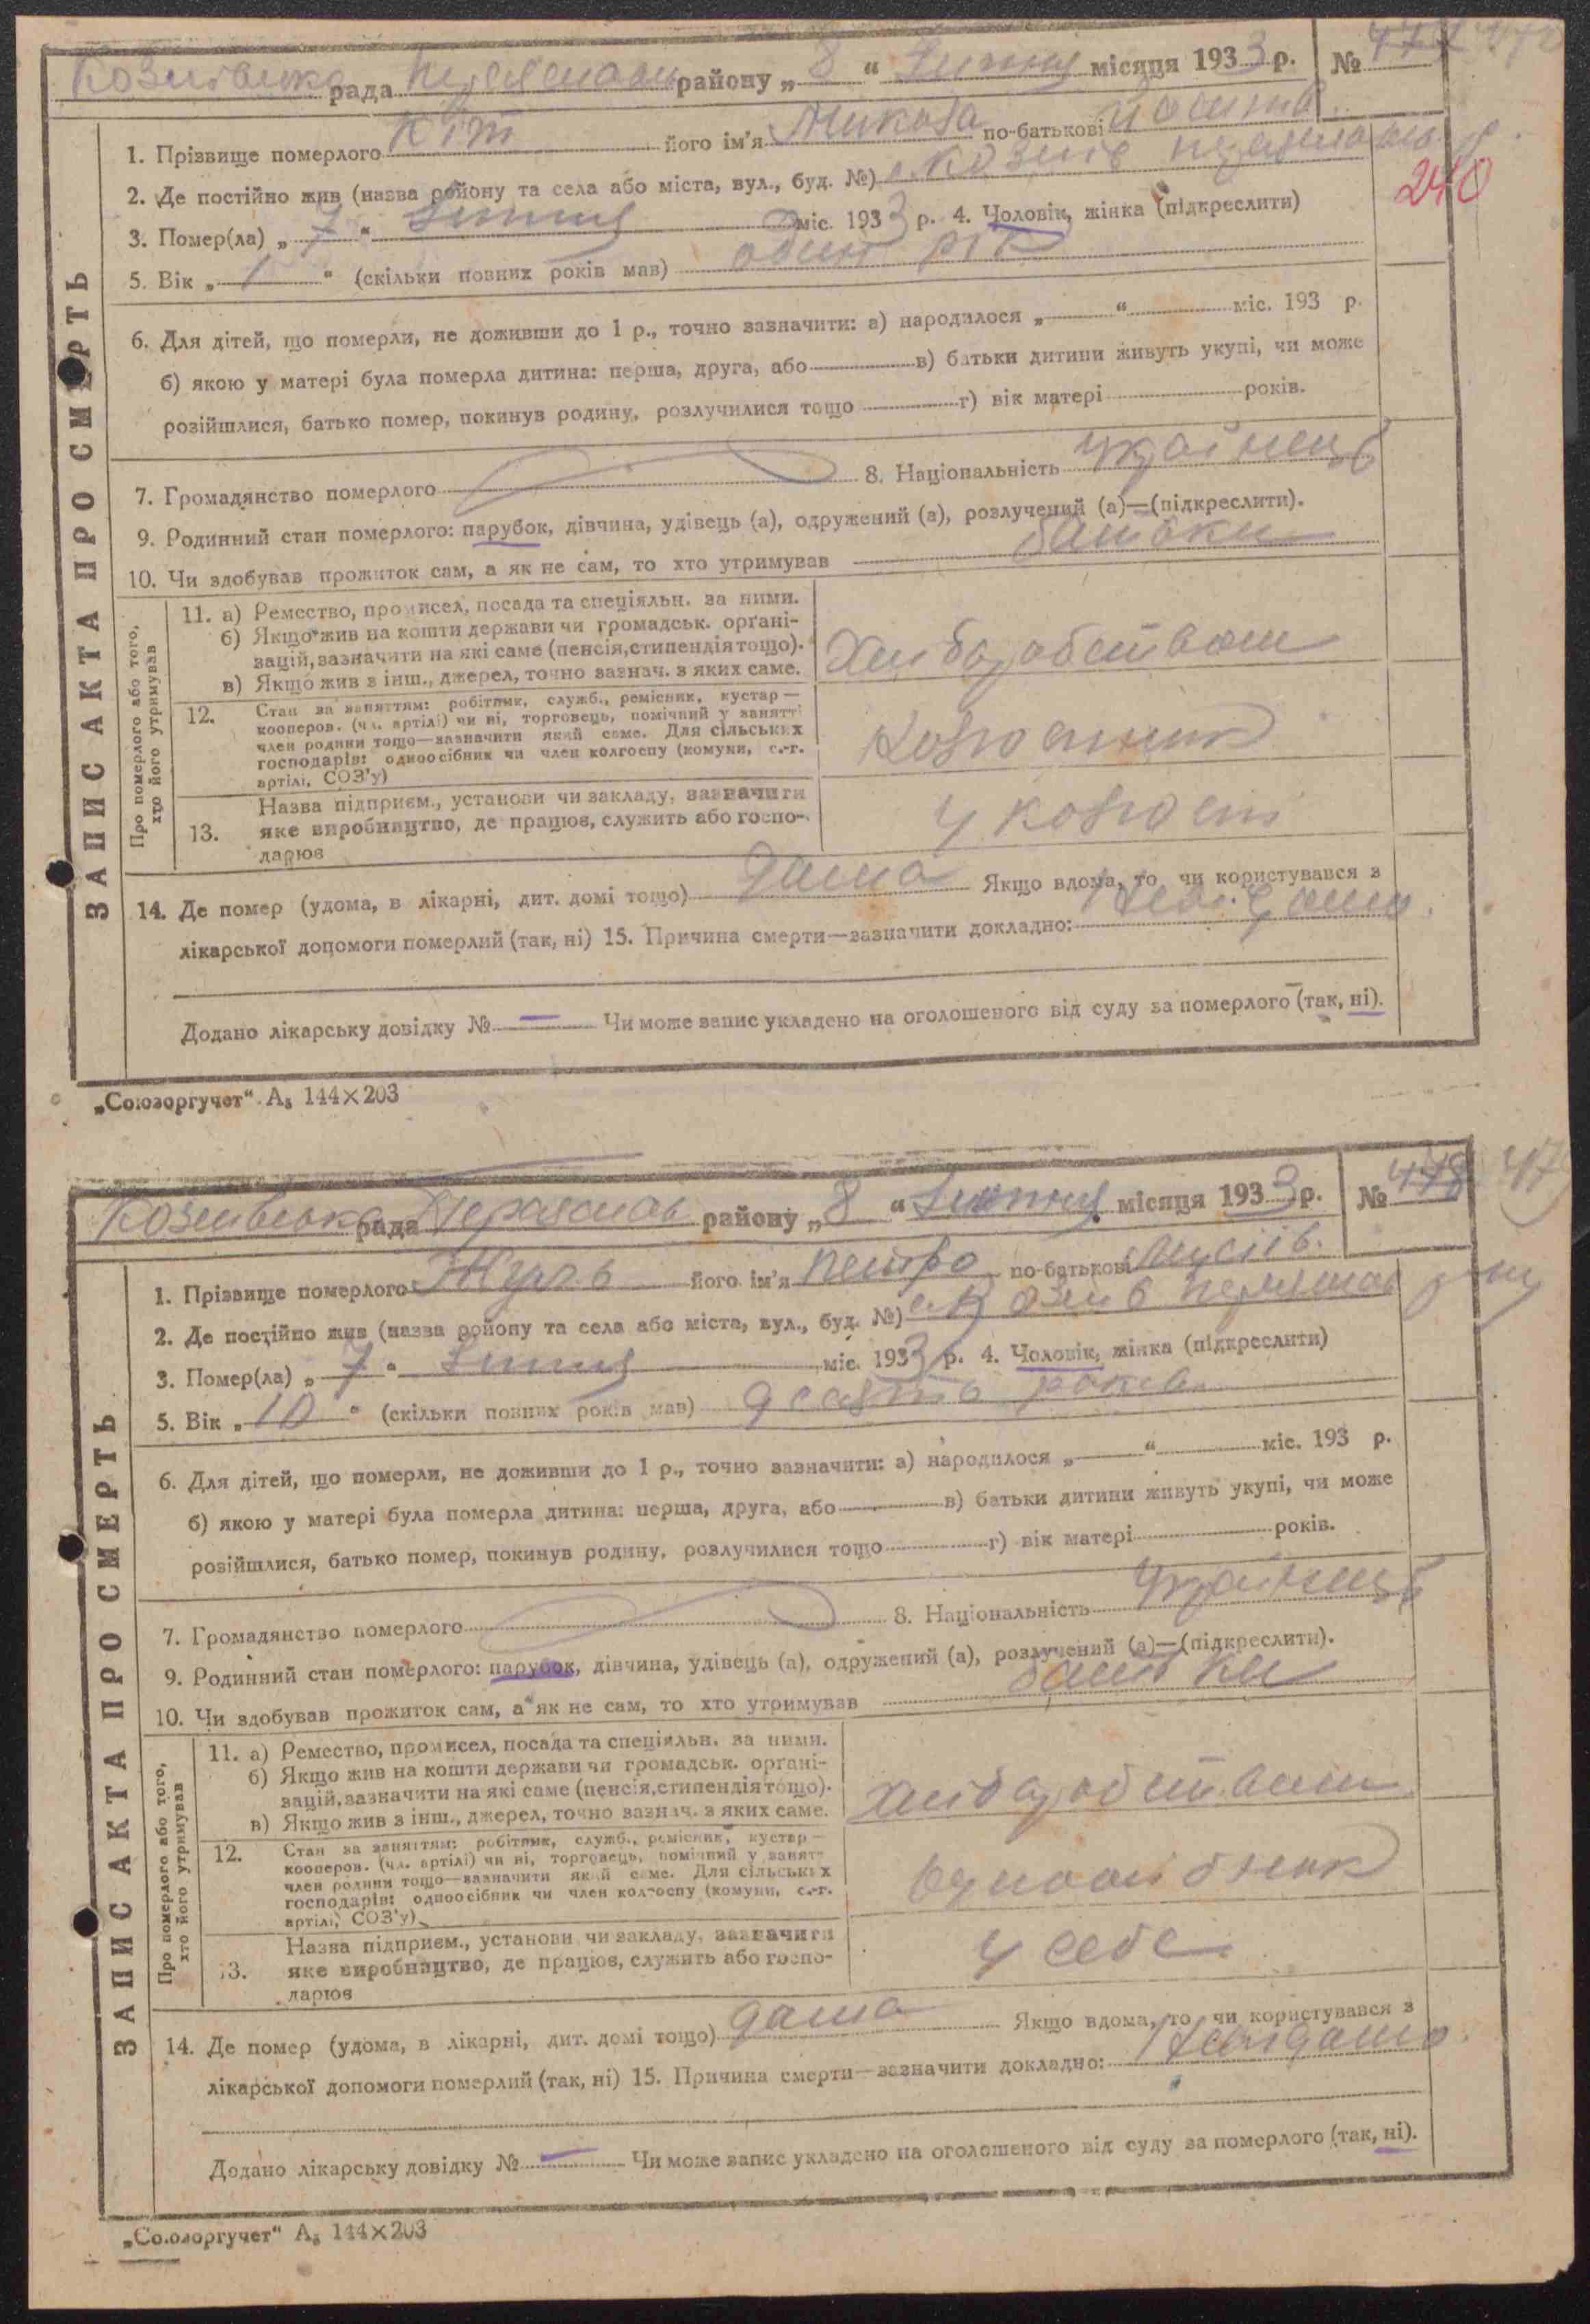 Козинська рада Переяслав району „ 8 “ Липня місяця 1933 р. №
1. Прізвище померлого Кіт його ім'я Микола по-батькові Йосипів.
2. Де постійно жив (назва району та села або міста, вул., буд. №) с. Козин
240
3. Помер(ла) „ 7 “ Липня міс. 1933 р. 4. Чоловік, жінка (підкреслити)
5. Вік „ 1 “ (скільки повних років мав) один рік
6. Для дітей, що померли, не доживши до 1 р., точно зазначити: а) народилося „ “ міс. 193 р.
б) якою у матері була померла дитина: перша, друга, або в) батьки дитини живуть укупі, чи може
розійшлися, батько помер, покинув родину, розлучилися тощо г) вік матері років.
7. Громадянство померлого 8. Національність українець
9. Родинний стан померлого: парубок, дівчина, удівець (а), одружений (а), розлучений (а)—(підкреслити).
10. Чи здобував прожиток сам, а як не сам, то хто утримував батьки
ЗАПИС АКТА ПРО СМЕРТЬ
Про померлого або того, хто його утримував
11. а) Ремество, промисел, посада та спеціяльн. за ними.
б) Якщо жив на кошти держави чи громадськ. орґані-
зацій, зазначити на які саме (пенсія, стипендія тощо).
в) Якщо жив з інш., джерел, точно зазнач. з яких саме.
Хліборобством
12. Стан за заняттям: робітник, служб., ремісник, кустар—
кооперов. (чл. артілі) чи ні, торговець, помічний у занятті
член родини тощо—зазначити який саме. Для сільських
господарів: одноосібник чи член колгоспу (комуни, с.-г.
артілі, СОЗ'у)
Колгоспник
13. Назва підприєм., установи чи закладу, зазначити
яке виробництво, де працює, служить або госпо-
дарює
у колгоспі
14. Де помер (удома, в лікарні, дит. домі тощо) дома Якщо вдома, то чи користувався з
лікарської допомоги померлий (так, ні) 15. Причина смерти—зазначити докладно: Невідомо.
Додано лікарську довідку № — Чи може запис укладено на оголошеного від суду за померлого (так, ні).
„Союзоргучет“ А₅ 144×203
Козинська рада Переяслав району „ 8 “ Липня місяця 1933 р. № 478
1. Прізвище померлого його ім'я Петро по-батькові
2. Де постійно жив (назва району та села або міста, вул., буд. №) с. Козин Переяслав
3. Помер(ла) „ 7 “ Липня міс. 1933 р. 4. Чоловік, жінка (підкреслити)
5. Вік „ 10 “ (скільки повних років мав) десять років
6. Для дітей, що померли, не доживши до 1 р., точно зазначити: а) народилося „ “ міс. 193 р.
б) якою у матері була померла дитина: перша, друга, або в) батьки дитини живуть укупі, чи може
розійшлися, батько помер, покинув родину, розлучилися тощо г) вік матері років.
7. Громадянство померлого 8. Національність українець
9. Родинний стан померлого: парубок, дівчина, удівець (а), одружений (а), розлучений (а)—(підкреслити).
10. Чи здобував прожиток сам, а як не сам, то хто утримував батьки
ЗАПИС АКТА ПРО СМЕРТЬ
Про померлого або того, хто його утримував
11. а) Ремество, промисел, посада та спеціяльн. за ними.
б) Якщо жив на кошти держави чи громадськ. орґані-
зацій, зазначити на які саме (пенсія, стипендія тощо).
в) Якщо жив з інш., джерел, точно зазнач. з яких саме.
хліборобством
12. Стан за заняттям: робітник, служб., ремісник, кустар—
кооперов. (чл. артілі) чи ні, торговець, помічний у занятті
член родини тощо—зазначити який саме. Для сільських
господарів: одноосібник чи член колгоспу (комуни, с.-г.
артілі, СОЗ'у)
Одноосібник
13. Назва підприєм., установи чи закладу, зазначити
яке виробництво, де працює, служить або госпо-
дарює
у себе
14. Де помер (удома, в лікарні, дит. домі тощо) дома Якщо вдома, то чи користувався з
лікарської допомоги померлий (так, ні) 15. Причина смерти—зазначити докладно: Невідомо.
Додано лікарську довідку № — Чи може запис укладено на оголошеного від суду за померлого (так, ні).
„Союзоргучет“ А₅ 144×203